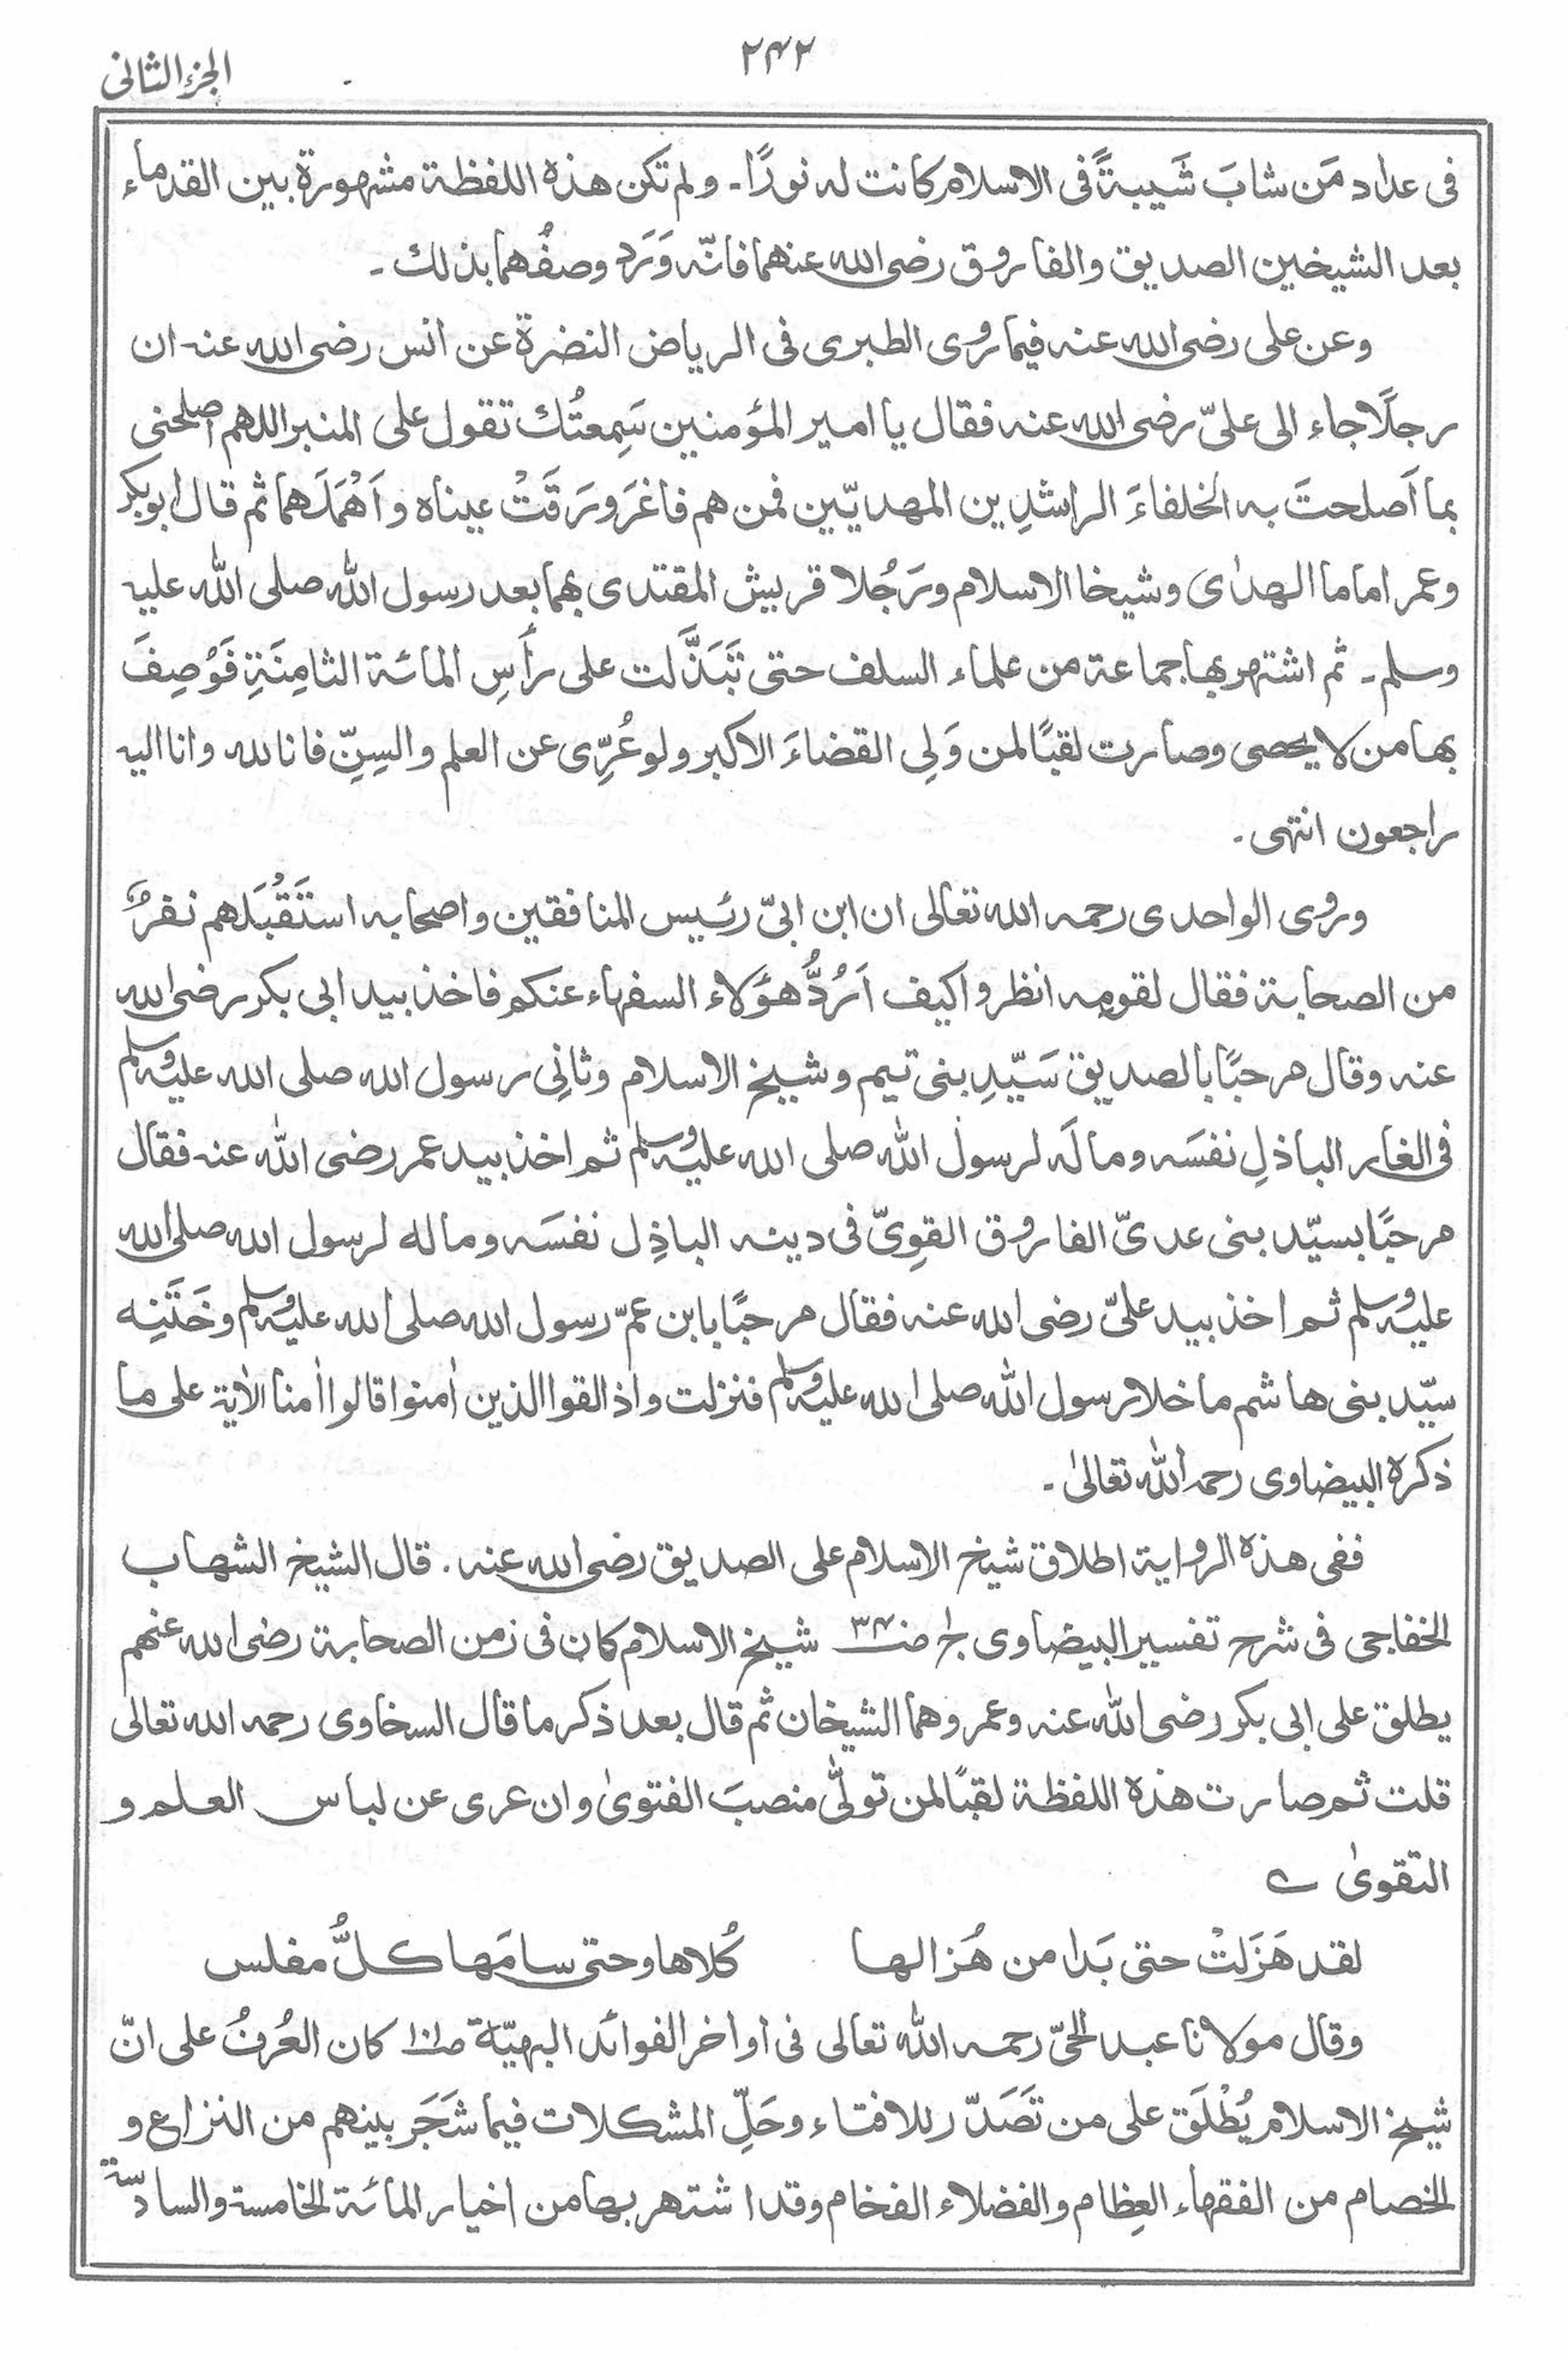 الجزء الثانی
۲۴۲
فی عداد مَن شابَ شَیبةً فی الاسلام کانت له نورًا۔ ولم تکن هذه اللفظة مشهورة بین القدماء
بعد الشیخین الصدیق والفاروق رضی الله عنهما فانّه وَرَد وصفُهما بذلك۔
وعن علی رضی الله عنه فیما روی الطبری فی الریاض النضرة عن انس رضی الله عنه ان
رجلًا جاء الی علیّ رضی الله عنه فقال یا امیر المؤمنین سَمِعتُك تقول علی المنبر اللهم اصلحنی
بما اَصلحتَ به الخلفاءَ الراشدِین المهدیّین فمن هم فاغرَورَقَتْ عیناه و اَهْمَلَهما ثم قال ابوبکر
وعمر اماما الهدٰی وشیخا الاسلام ورَجُلا قریش المقتدی بهما بعد رسول الله صلی الله علیه
وسلم۔ ثم اشتهر بها جماعة من علماء السلف حتی تَبَذَّلت علی رأسِ المائة الثامِنَةِ فَوُصِفَ
بها من لا یحصی وصارت لقبًا لمن وَلِی القضاءَ الاکبر ولو عُرِّی عن العلم والسِنِّ فانا لله وانا الیه
راجعون انتهی۔
وروی الواحدی رحمه الله تعالی ان ابن ابیّ رئیس المنافقین واصحابه استَقْبَلَهم نفرٌ
من الصحابة فقال لقومِه انظروا کیف اَرُدُّ هؤلاء السفهاء عنکم فاخذ بید ابی بکر رضی الله
عنه وقال مرحبًا بالصدیق سَیّدِ بنی تیم وشیخ الاسلام وثانِی رسول الله صلی الله علیه وسلم
فی الغار الباذلِ نفسَه ومالَه لرسول الله صلی الله علیه وسلم ثم اخذ بید عمر رضی الله عنه فقال
مرحبًا بسیّد بنی عدیّ الفاروق القوِیّ فی دینه الباذِل نفسَه وماله لرسول الله صلی الله
علیه وسلم ثم اخذ بید علیّ رضی الله عنه فقال مرحبًا یا ابن عمّ رسول الله صلی الله علیه وسلم وخَتَنِه
سیّد بنی هاشم ما خلا رسول الله صلی الله علیه وسلم فنزلت واذا لقوا الذین اٰمنوا قالوا اٰمنا الاٰیة علی ما
ذکره البیضاوی رحمه الله تعالیٰ۔
ففی هذه الروایة اطلاق شیخ الاسلام علی الصدیق رضی الله عنه. قال الشیخ الشهاب
الخفاجی فی شرح تفسیر البیضاوی ج۱ ص۳۴۰ شیخ الاسلام کان فی زمن الصحابة رضی الله عنهم
یطلق علی ابی بکر رضی الله عنه وعمر وهما الشیخان ثم قال بعد ذکر ما قال السخاوی رحمه الله تعالی
قلت ثم صارت هذه اللفظة لقبًا لمن تولّی منصبَ الفتویٰ وان عری عن لباس العلم و
التقویٰ ؎
لقد هَزَلَتْ حتی بَدا من هُزالها کُلاها وحتی سامَها کلُّ مفلس
وقال مولانا عبد الحیّ رحمه الله تعالی فی اواخر الفوائد البهیّة ص۱۰۱ کان العُرفُ علی انّ
شیخ الاسلام یُطْلَق علی من تَصَدّر للافتاء وحَلِّ المشکلات فیما شَجَر بینهم من النزاع و
الخصام من الفقهاء العِظام والفضلاء الفخام وقد اشتهر بها من اخیار المائة الخامسة والسادسة